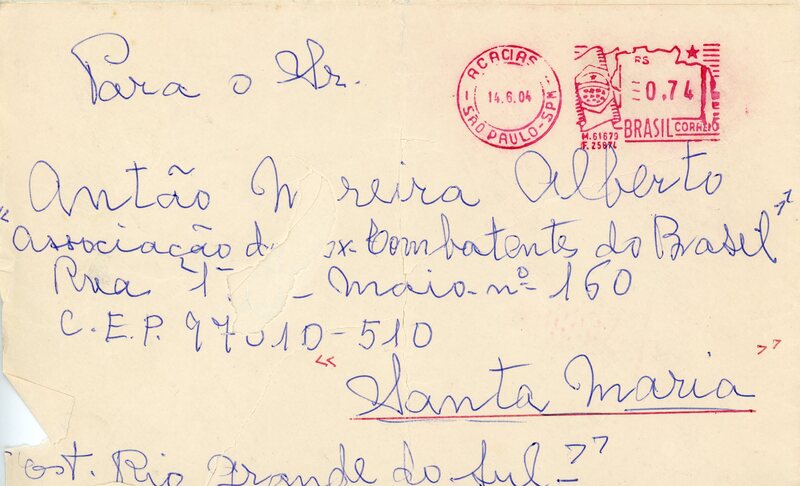 Para o Sr.
ACACIAS
14.6.04
SÃO PAULO-SPM
RS
0,74
BRASIL CORREIO
M.61679
F.25874
Antão M reira Alberto
"Associação d x-Combatentes do Brasil"
Rua 1º Maio-nº 160
C.E.P. 97010-510
"Santa Maria"
ost. Rio Grande do Sul-"